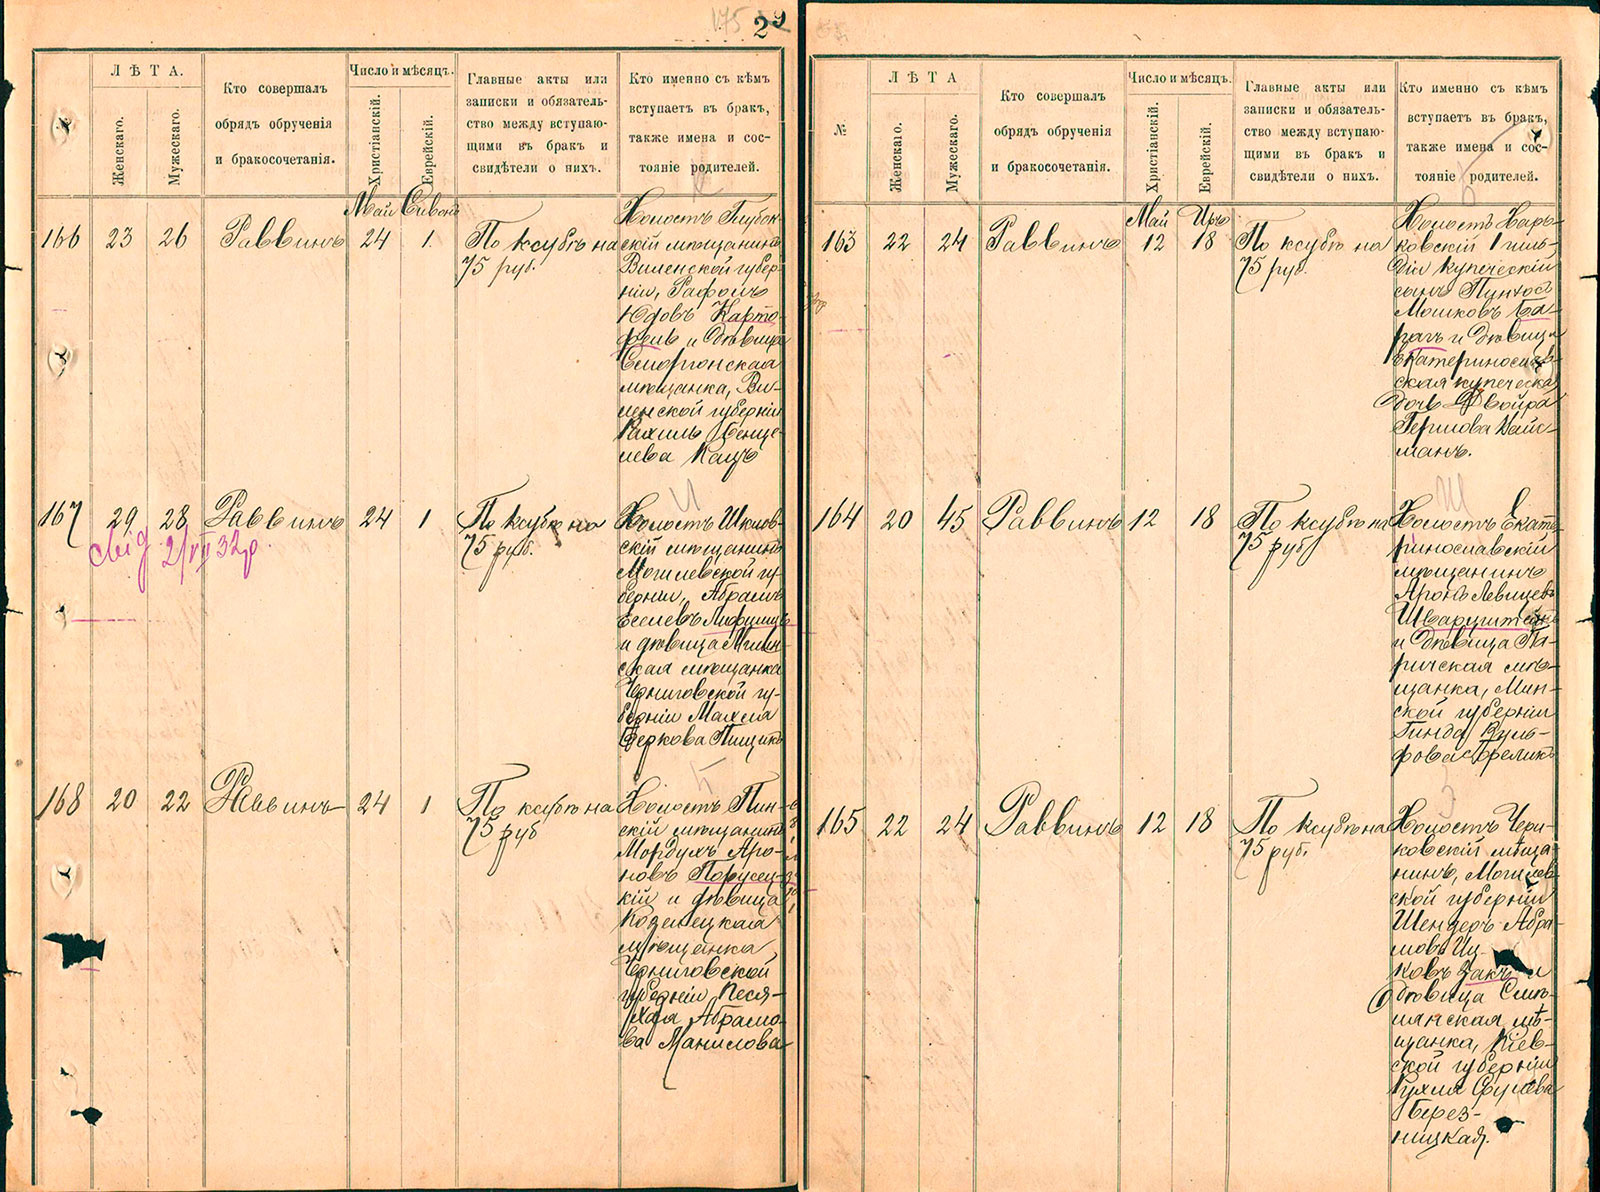 175
29
ЛѢТА.
Женскаго.
Мужескаго.
Кто совершалъ
обрядъ обрученія
и бракосочетанія.
Число и мѣсяцъ.
Христіанскій.
Еврейскій.
Главные акты или
записки и обязатель-
ство между вступаю-
щими въ бракъ и
свидѣтели о нихъ.
Кто именно съ кѣмъ
вступаетъ въ бракъ,
также имена и сос-
тояніе родителей.
К
Май
166 23 26 Раввинъ 24 1
По ксубѣ на
75 руб.
Холостъ Глубок-
скій мѣщанинъ
Виленской губер-
ніи, Рафаилъ
Юдовъ Карто-
фель и дѣвица
Сморгонская
мѣщанка, Ви-
ленской губерніи
Рахиль Бенце-
лева Кацъ
167 29 28 Раввинъ 24 1
свід 2/VII 32р.
По ксубѣ на
75 руб.
Холостъ Шклов-
скій мѣщанинъ
Могилевской гу-
берніи, Абрамъ
Еселевъ Лифшицъ
и дѣвица
ская мѣщанка
Черниговской гу-
берніи
Беркова Пищикъ
168 20 22 Раввинъ 24 1
По ксубѣ на
75 руб
Холостъ Пин-
скій мѣщанинъ
Мордухъ Аро-
новъ Порусец-
кій и дѣвица
Козелецкая
мѣщанка,
Черниговской
губерніи Песя-
Хая Абрамо-
ва Манилова
№
ЛѢТА
Женскаго.
Мужескаго.
Кто совершалъ
обрядъ обрученія
и бракосочетанія.
Число и мѣсяцъ.
Христіанскій.
Еврейскій.
Главные акты или
записки и обязатель-
ство между вступаю-
щими въ бракъ и
свидѣтели о нихъ.
Кто именно съ кѣмъ
вступаетъ въ бракъ,
также имена и сос-
тояніе родителей.
Б
Май Іръ
163 22 24 Раввинъ 12 18
По ксубѣ на
75 руб.
Холостъ Харь-
ковскій 1 гиль-
діи купеческій
сынъ Пинхосъ
Мошковъ Ба-
рачъ и дѣвица
Екатеринослав-
ская купеческа
дочь Двойра
Гершова Найс-
манъ.
Ш
164 20 45 Раввинъ 12 18
По ксубѣ на
75 руб
Холостъ Екате-
ринославскій
мѣщанинъ
Аронъ
Шварцштейнъ
и дѣвица Па-
ричская мѣ-
щанка, Мин-
ской губерніи
Гинда Вуль-
фова Фреликъ
З
165 22 24 Раввинъ 12 18
По ксубѣ на
75 руб.
Холостъ Чери-
ковскій мѣща-
нинъ, Могилев-
ской губерніи
Шендеръ Абра-
мовъ Иц-
ковъ Закъ и
дѣвица Смѣ-
лянская мѣ-
щанка, Кіев-
ской губерніи
Рухля Срулева
Берез-
ницкая.